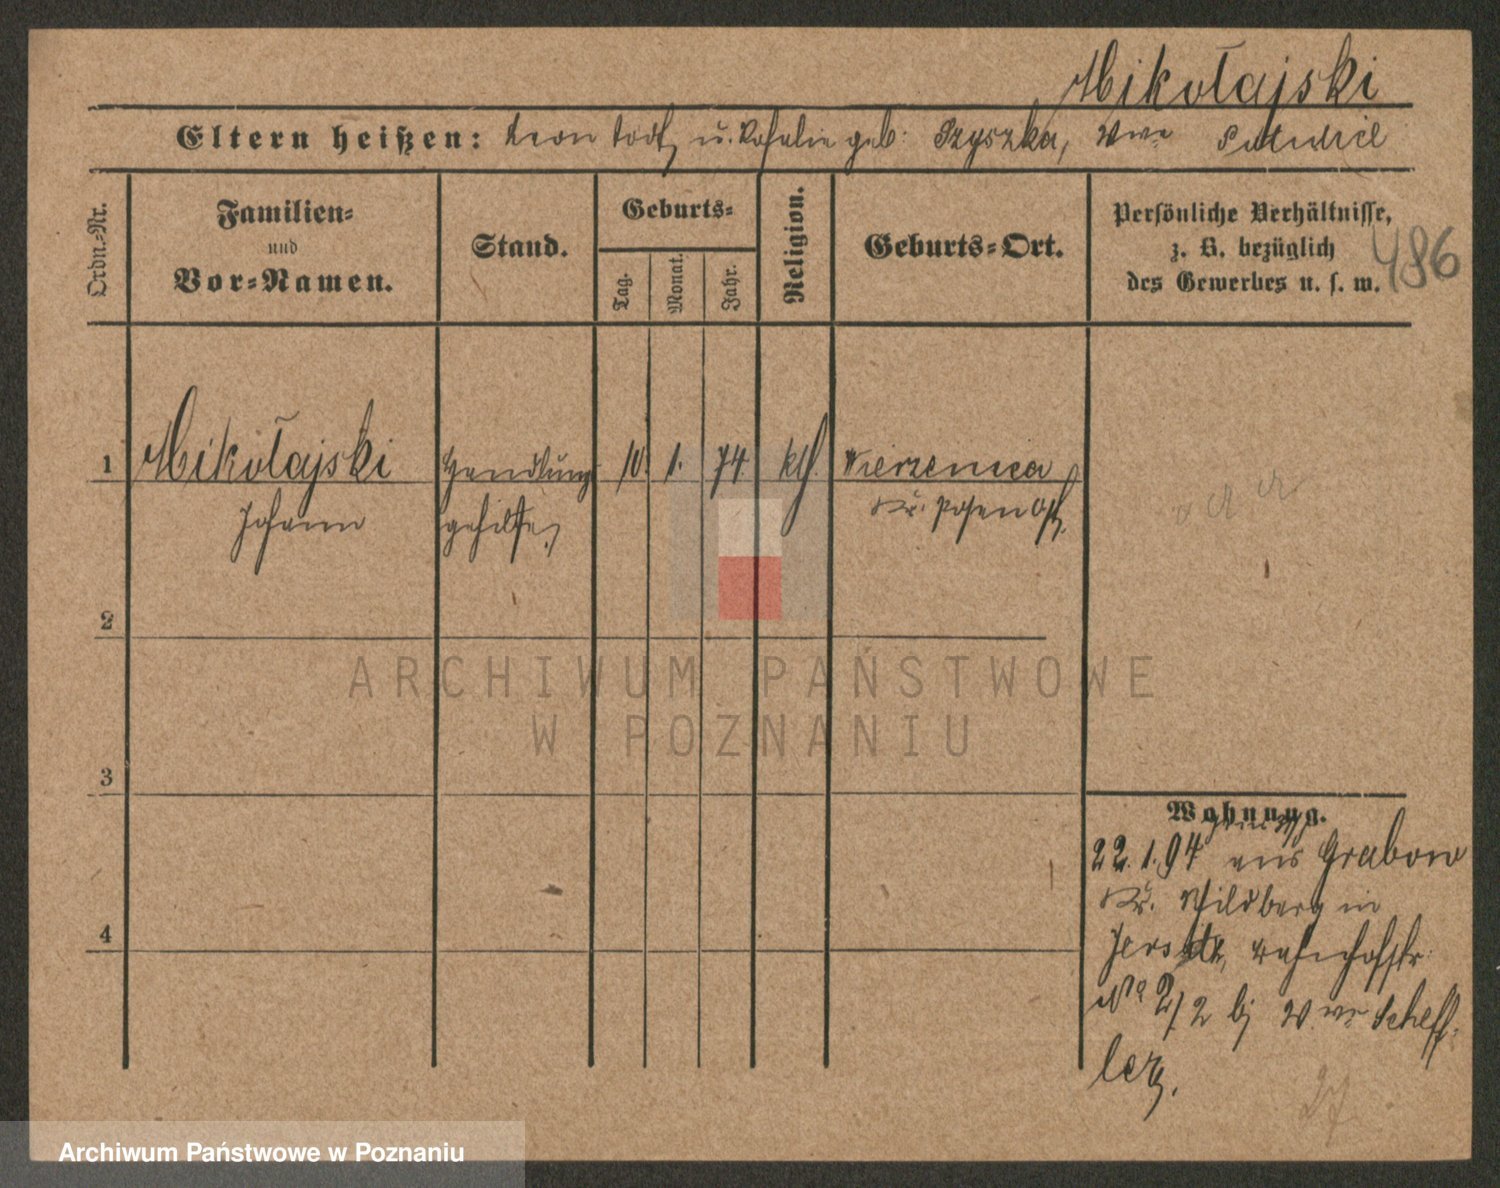 Mikołajski
Eltern heißen: Leon todt, u. Rosalie geb. Szyszka, Wwe
Ordn.-Nr.
Familien- und Vor-Namen.
Stand.
Geburts-
Tag.
Monat.
Jahr.
Religion.
Geburts-Ort.
Persönliche Verhältnisse,
z. B. bezüglich
des Gewerbes u. s. w.
486
1
Mikołajski
Johann
Handlungs-
gehilfe,
10.
1.
74.
kth.
Wierzenica
Kr. Posen Ost.
2
3
4
Wohnung.
22.1.94 aus Grabow
Kr. Schildberg in
Jersitz, Bahnhofstr.
No 2/2 bei Wwe Scheff-
ler,
27
ARCHIWUM PAŃSTWOWE
W POZNANIU
Archiwum Państwowe w Poznaniu